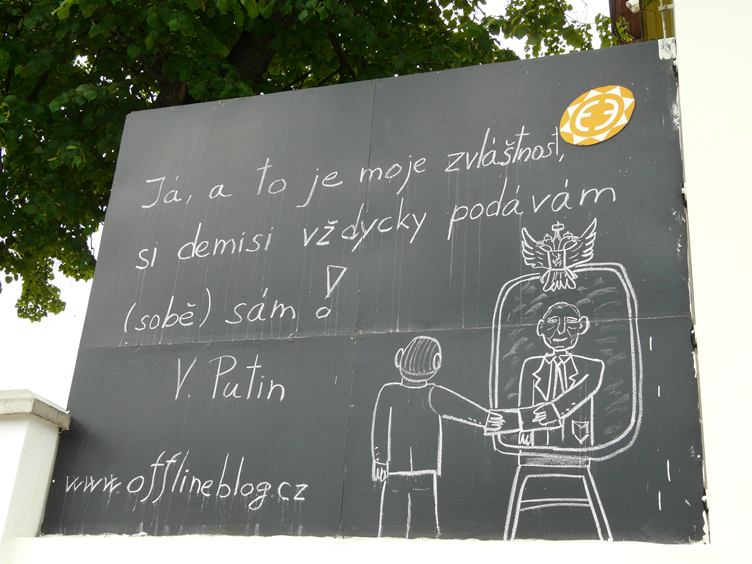 Já, a to je moje zvláštnost,
si demisi vždycky podávám
(sobě) sám!
V. Putin
www.offlineblog.cz